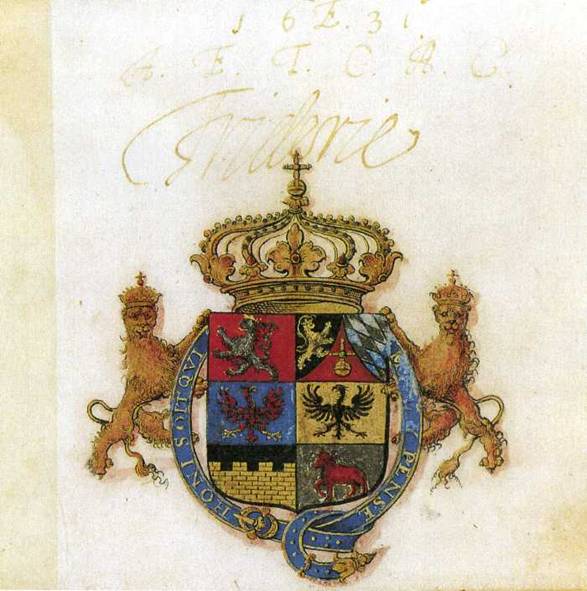 16 E. 31
A. E. T. C. A. C.
Frideric
HONI SOIT QVI MAL Y PENSE